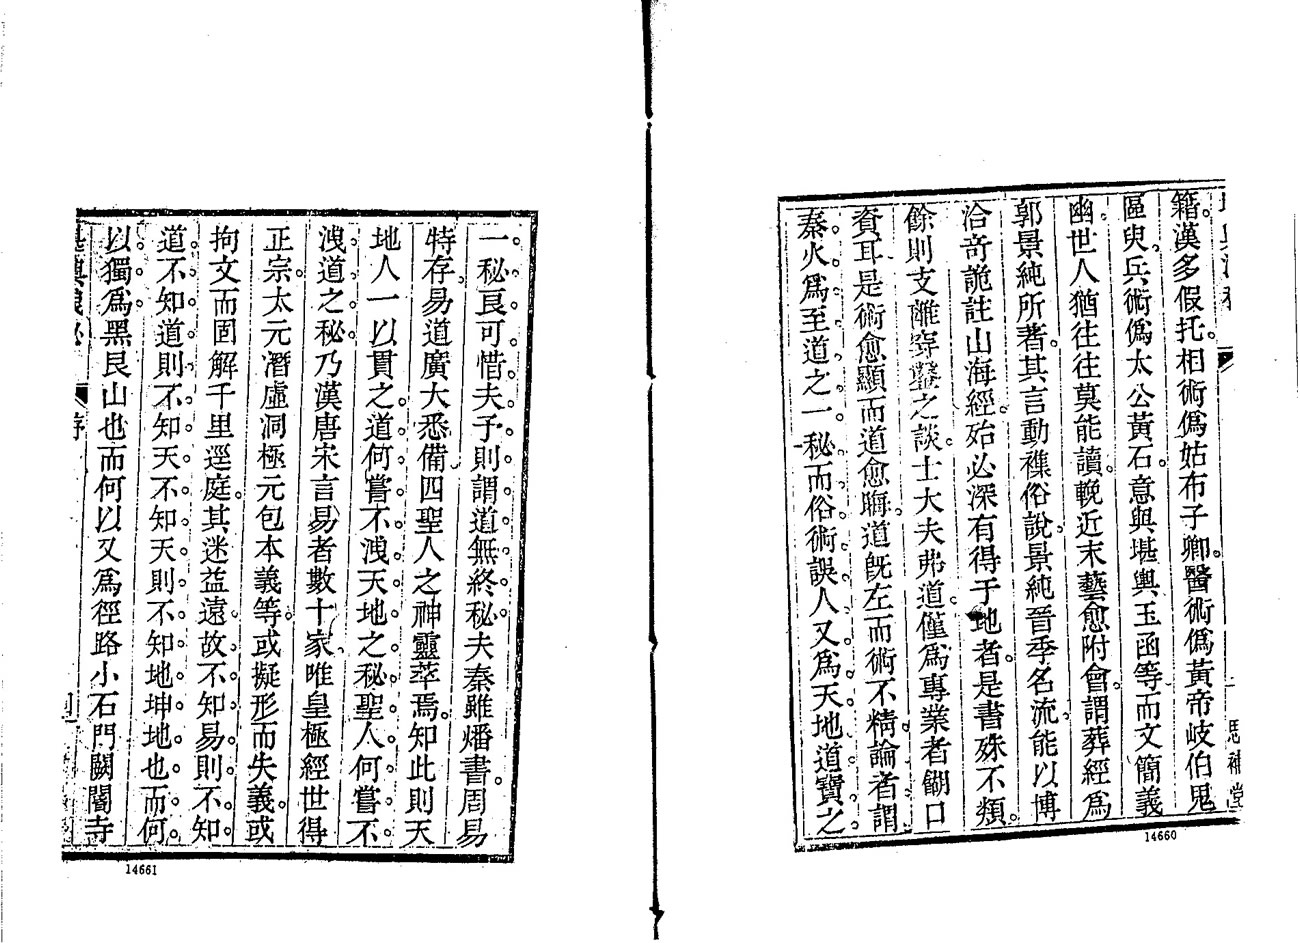 籍漢多假托相術僞姑布子卿醫術僞黃帝岐伯鬼
區臾兵術僞太公黃石意與堪輿玉函等而文簡義
幽世人猶往往莫能讀輓近末藝愈附會謂葬經爲
郭景純所著其言動襍俗說景純晉季名流能以博
洽奇詭註山海經殆必深有得于地者是書殊不類
餘則支離穿鑿之談士大夫弗道僅爲專業者餬口
資耳是術愈顯而道愈晦道旣左而術不精論者謂
秦火爲至道之一秘而俗術誤人又爲天地道寶之
14660
一秘良可惜夫子則謂道無終秘夫秦雖燔書周易
特存易道廣大悉備四聖人之神靈萃焉知此則天
地人一以貫之道何嘗不洩天地之秘聖人何嘗不
洩道之秘乃漢唐宋言易者數十家唯皇極經世得
正宗太元潛虛洞極元包本義等或擬形而失義或
拘文而固解千里逕庭其迷益遠故不知易則不知
道不知道則不知天不知天則不知地坤地也而何
以獨爲黑艮山也而何以又爲徑路小石門闕閽寺
序
14661